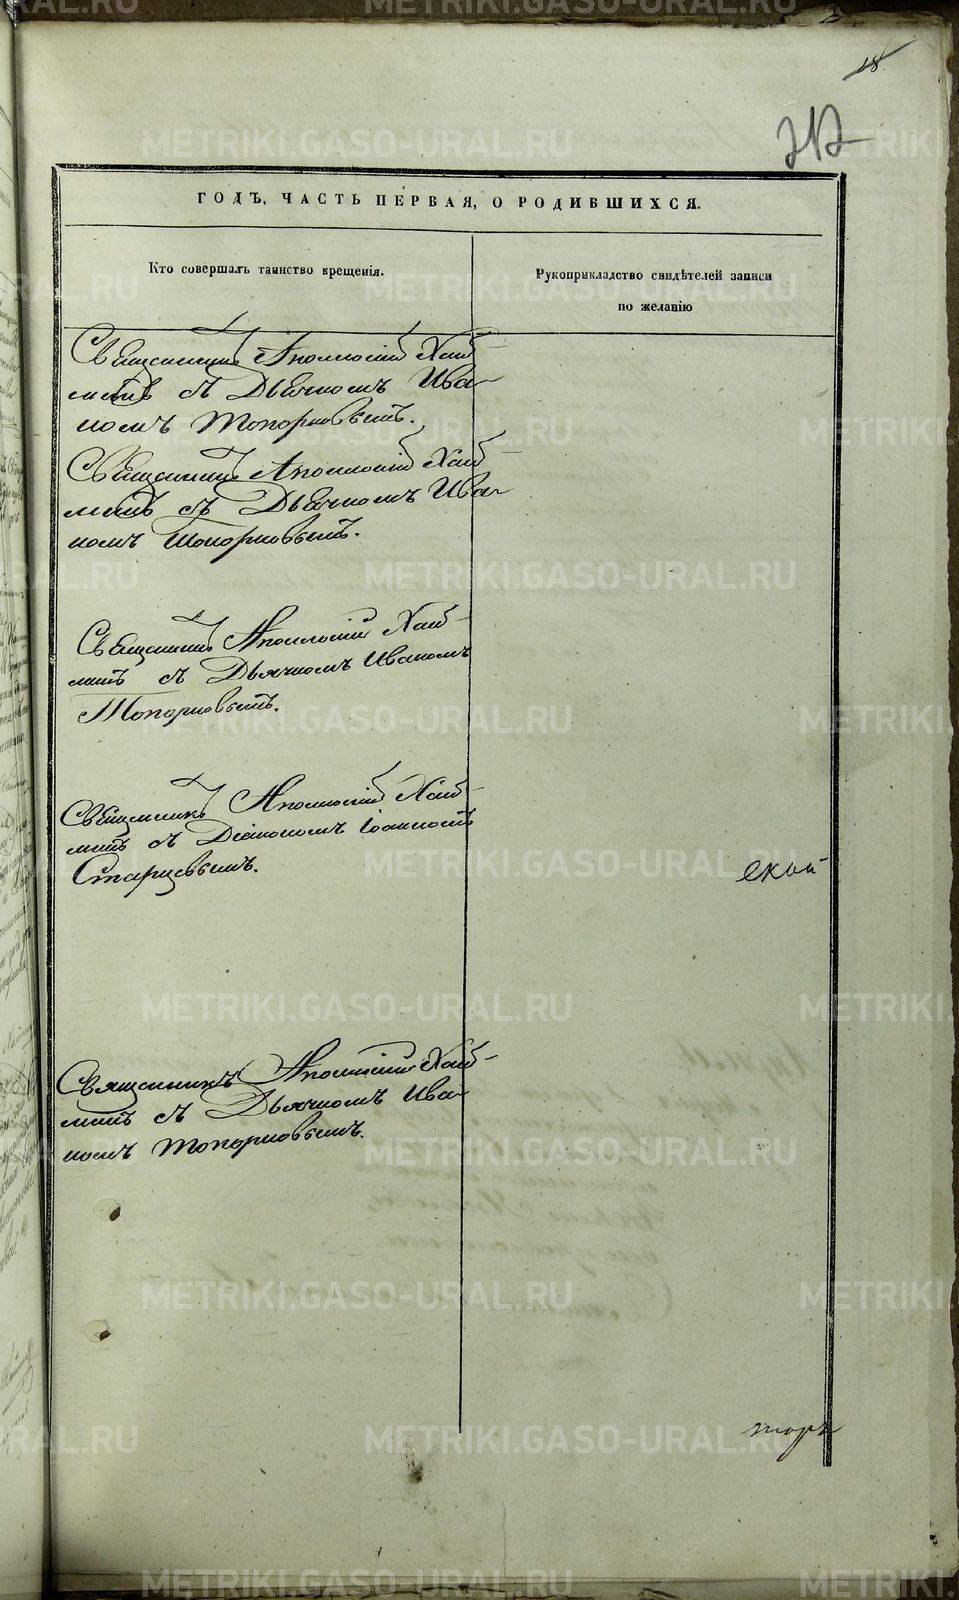 18.
212
ГОДЪ, ЧАСТЬ ПЕРВАЯ, О РОДИВШИХСЯ.
Кто совершалъ таинство крещенія.
Рукоприкладство свидѣтелей записи
по желанію
Священникъ Аполлосій Хай-
минъ съ Дьячкомъ Ива-
номъ Топорковымъ.
Священникъ Аполлосій Хай-
минъ съ Дьячкомъ Ива-
номъ Топорковымъ.
Священникъ Аполлосій Хай-
минъ съ Дьячкомъ Иваномъ
Топорковымъ.
Священникъ Аполлосій Хай-
минъ съ Діакономъ Іоанномъ
Старцевымъ.
Священникъ Аполлосій Хай-
минъ съ Дьячкомъ Ива-
номъ Топорковымъ.
METRIKI.GASO-URAL.RU